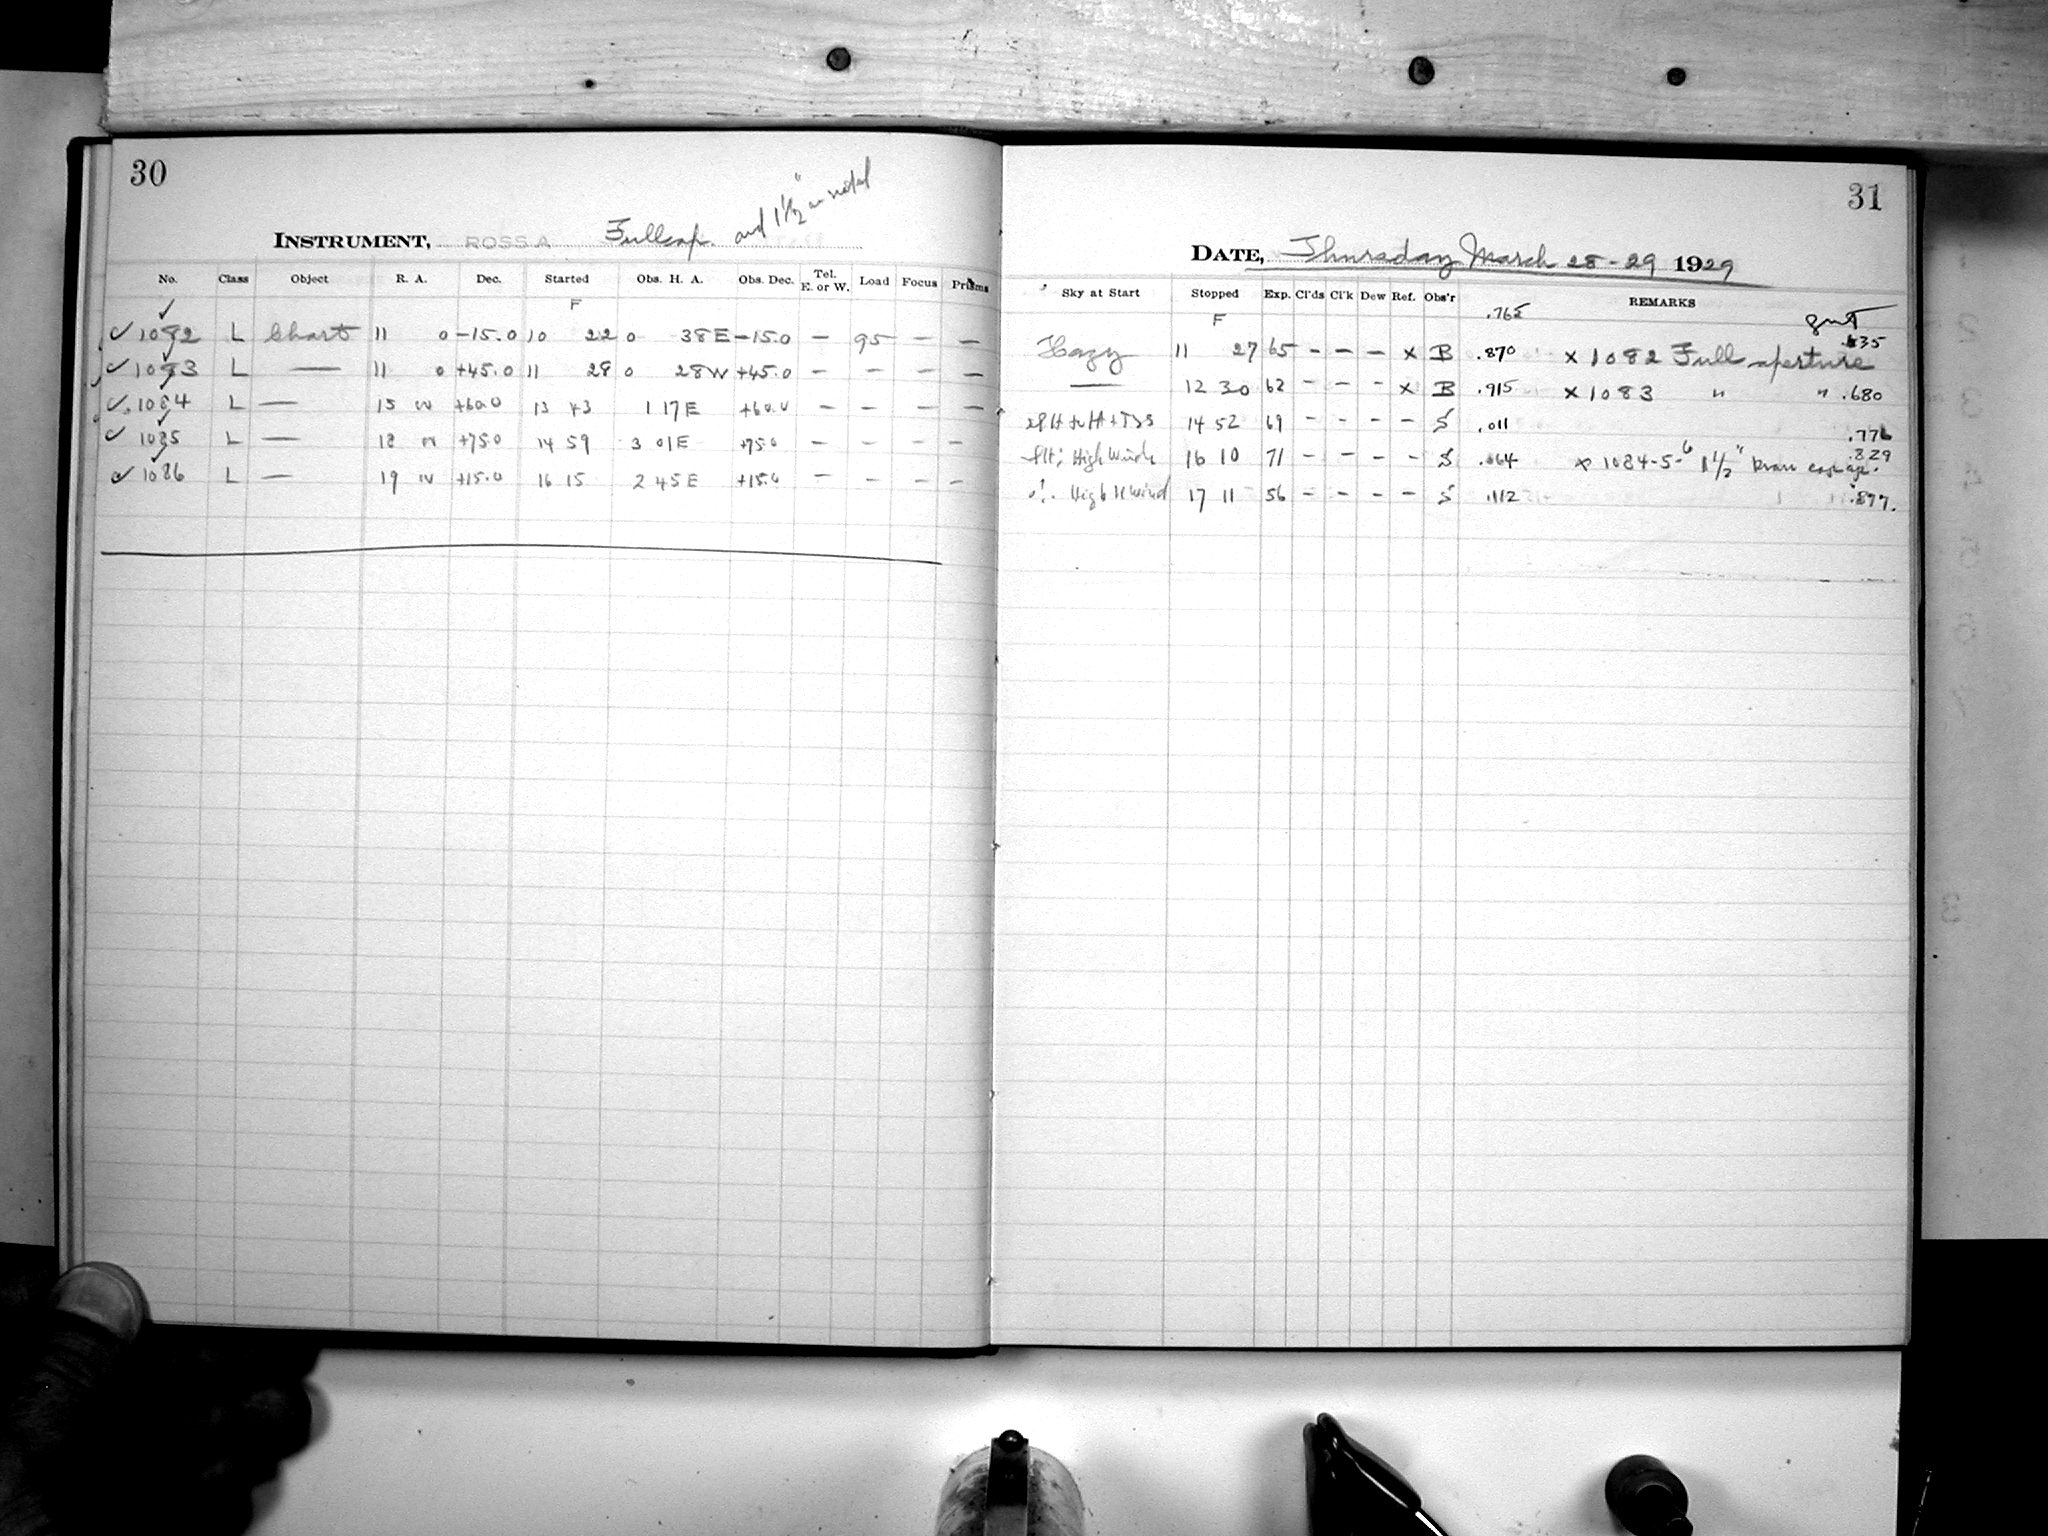 30
INSTRUMENT, ROSS A Full ap. and 1½" as noted
No. Class Object R. A. Dec. Started Obs. H. A. Obs. Dec. Tel. E. or W. Load Focus Prisms
F
✓ 1082 L Chart 11 0 -15.0 10 22 0 38 E -15.0 — 95 — —
✓ 1083 L — 11 0 +45.0 11 28 0 28 W +45.0 — — — —
✓ 1084 L — 15 +60.0 13 43 1 17 E +60.0 — — — —
✓ 1085 L — 18 +75.0 14 59 3 01 E +75.0 — — — —
✓ 1086 L — 19 +15.0 16 15 2 45 E +15.0 — — — —
31
DATE, Thursday March 28-29 1929
Sky at Start Stopped Exp. Cl'ds Cl'k Dew Ref. Obs'r REMARKS
F .765
Hazy 11 27 65 — — — x B .870 x 1082 Full aperture
— 12 30 62 — — — x B .915 x 1083 " " .680
14 52 69 — — — — S .011 .776
High Wind 16 10 71 — — — — S .064 x 1084-5-6 1½" .829
High Wind 17 11 56 — — — — S .112 .877